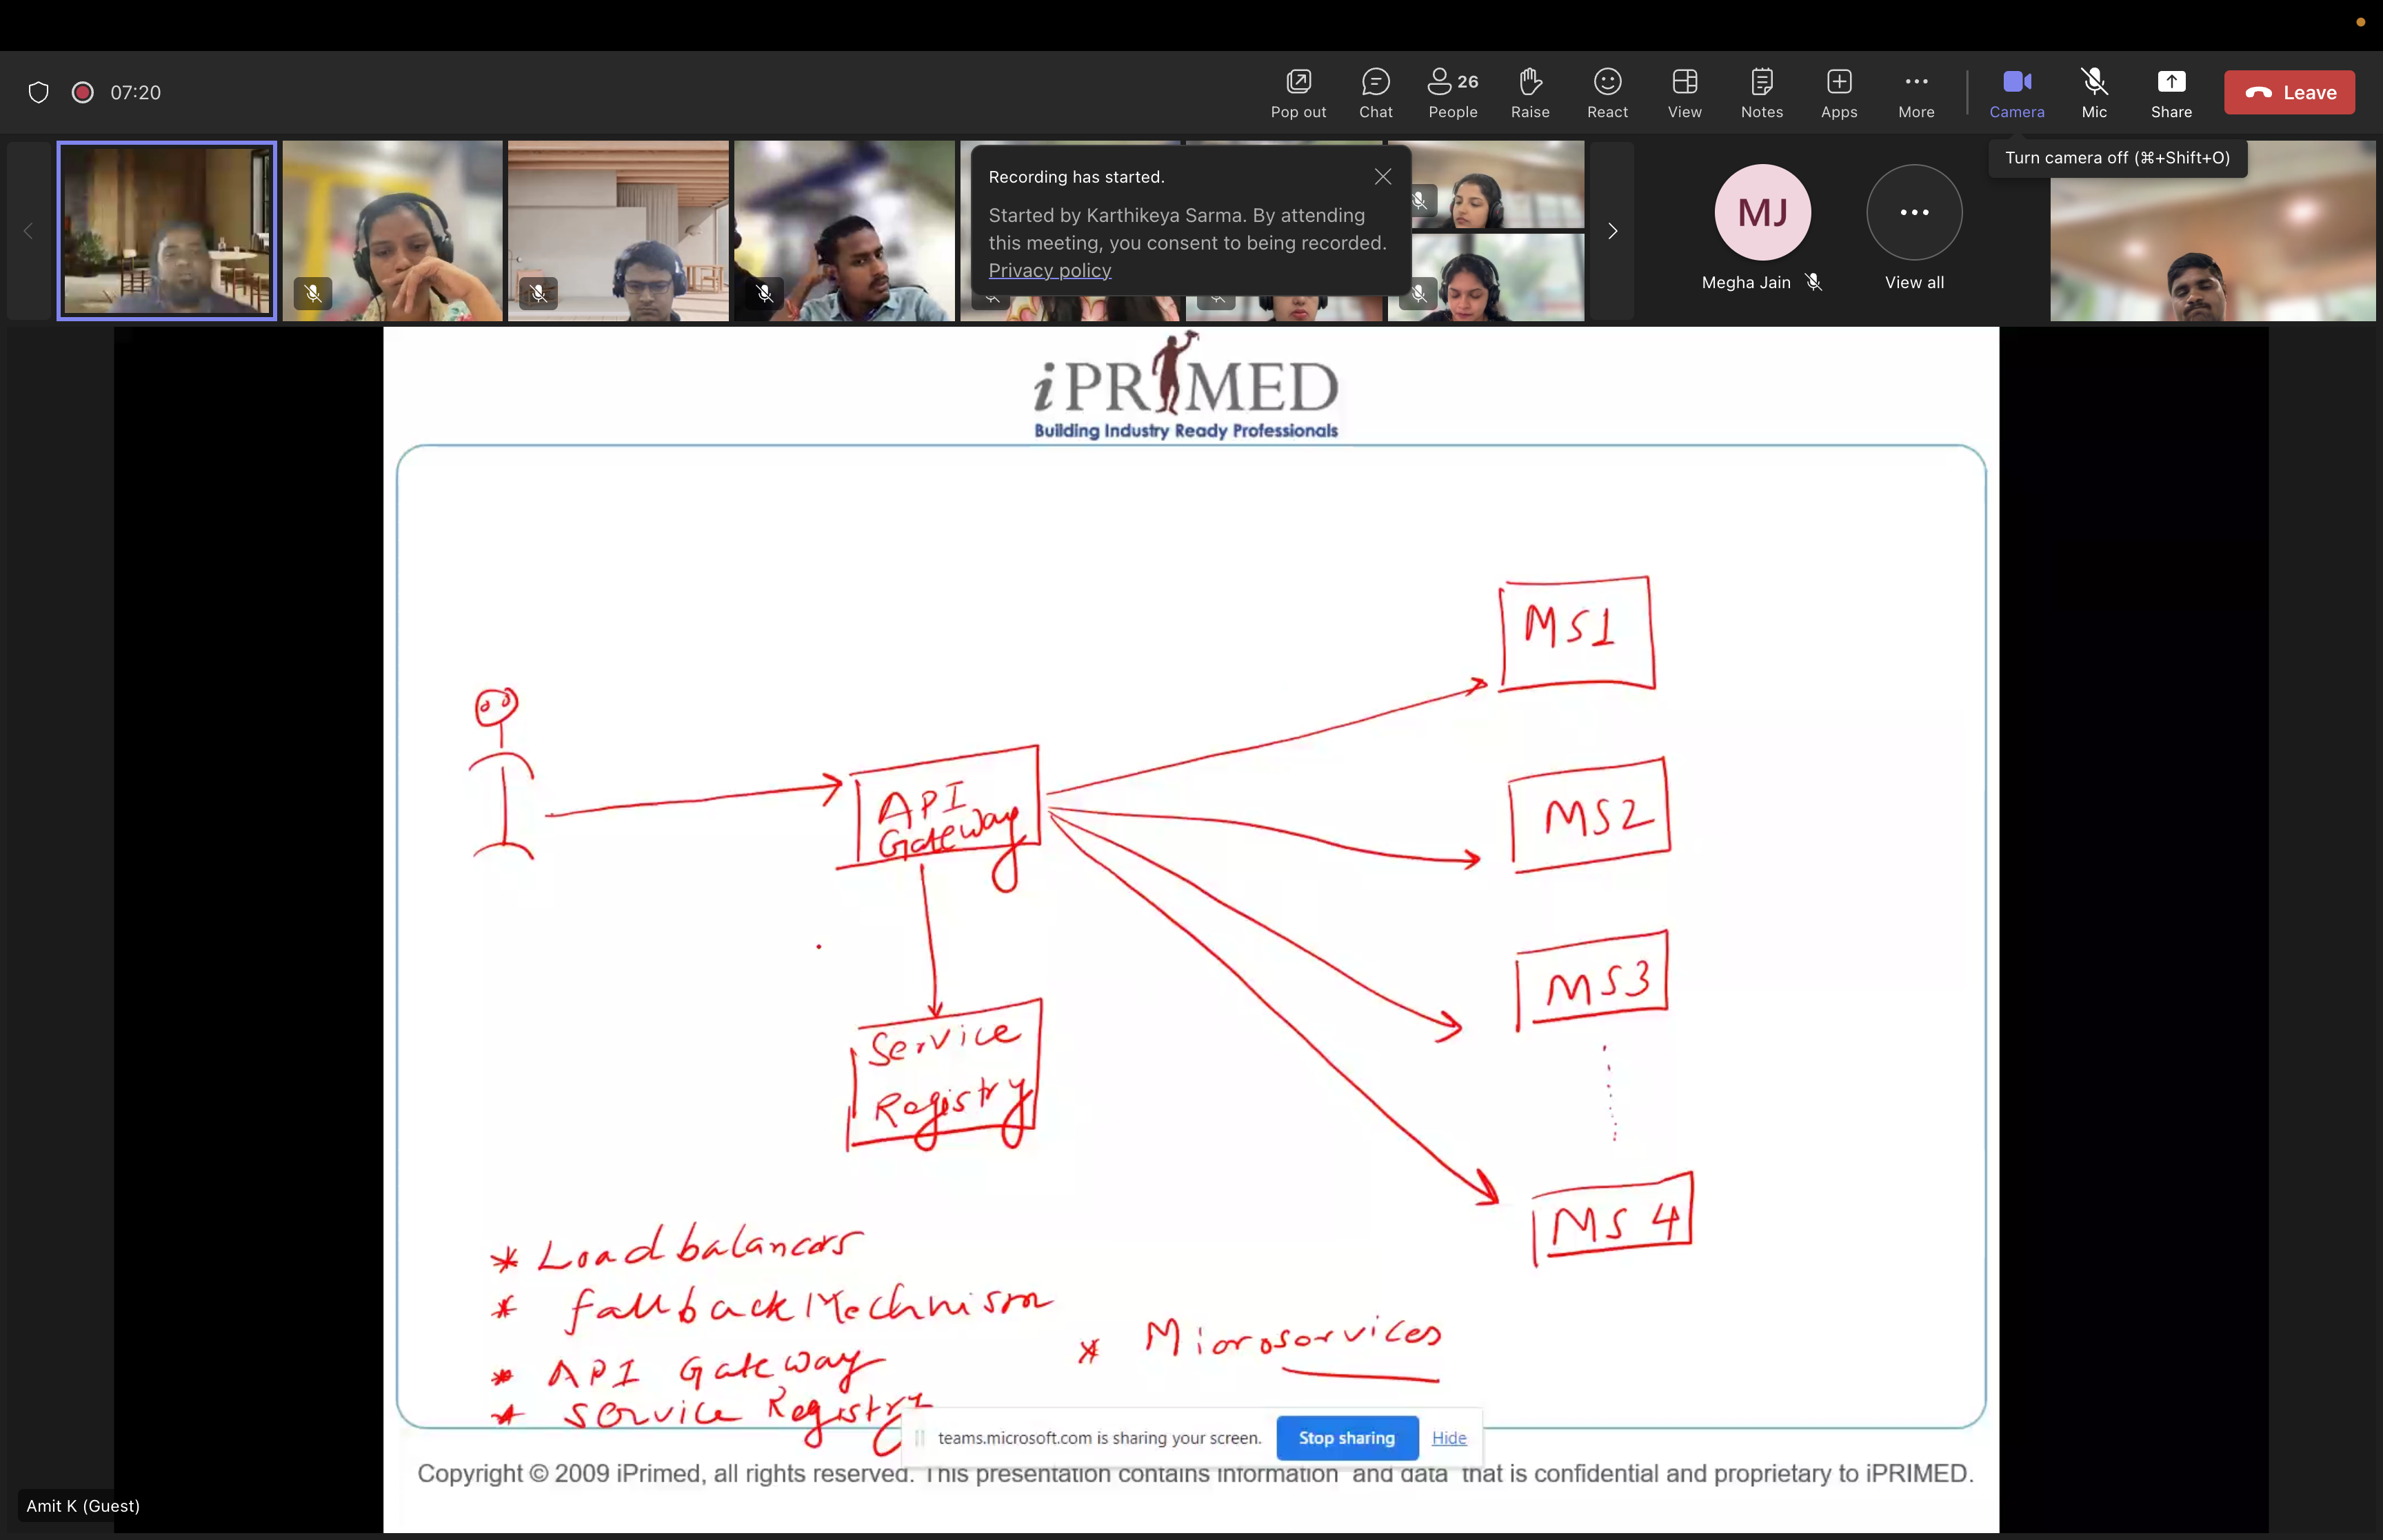 07:20
Pop out
Chat
26
People
Raise
React
View
Notes
Apps
More
Camera
Mic
Share
Leave
Turn camera off (⌘+Shift+O)
Recording has started.
Started by Karthikeya Sarma. By attending
this meeting, you consent to being recorded.
Privacy policy
MJ
Megha Jain
View all
iPRIMED
Building Industry Ready Professionals
MS1
API
Gateway
MS2
MS3
Service
Registry
MS 4
* Load balancers
* fallback Mechnism
* Microservices
* API Gateway
* Service Registry
teams.microsoft.com is sharing your screen.
Stop sharing
Hide
Copyright © 2009 iPrimed, all rights reserved. This presentation contains information and data that is confidential and proprietary to iPRIMED.
Amit K (Guest)